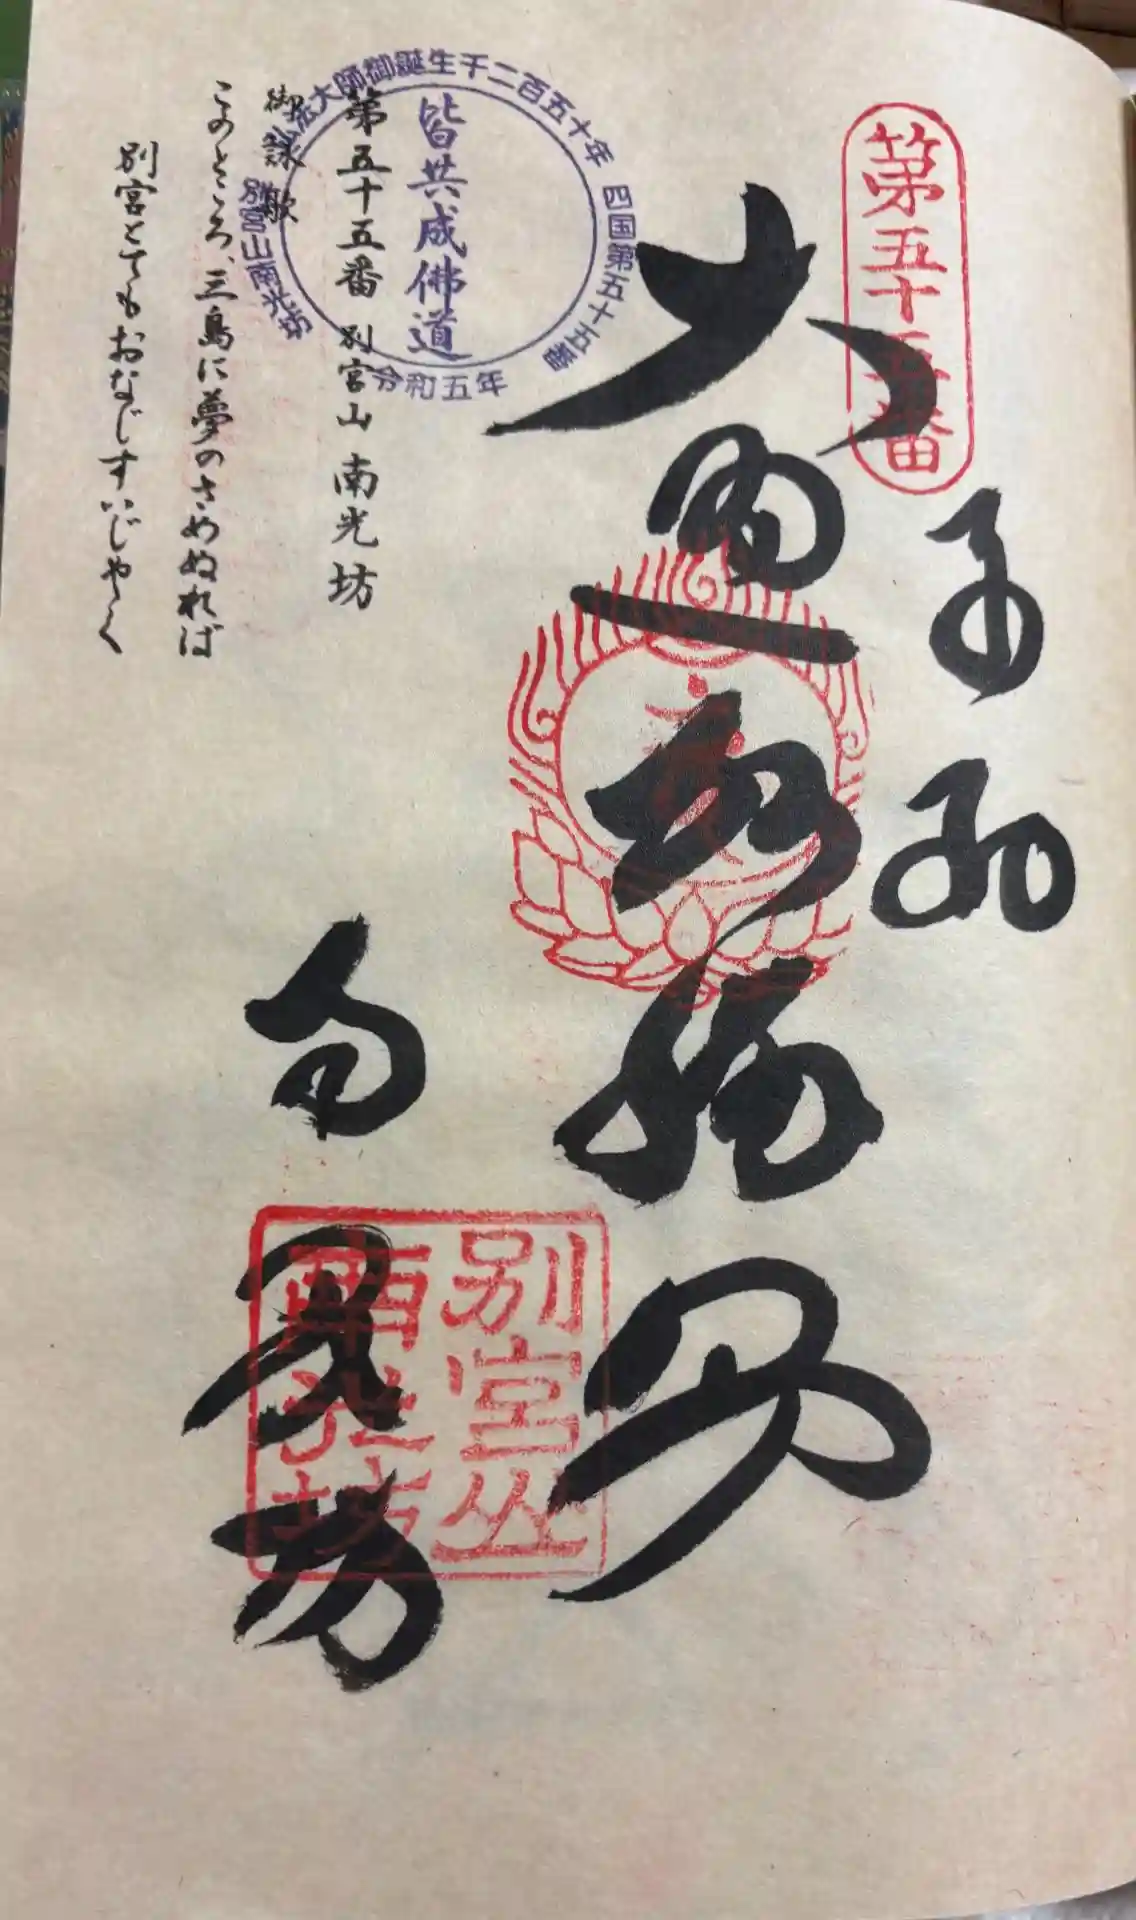 第五十五番
奉納
大通智勝佛
南光坊
別宮山
南光坊
弘法大師御誕生千二百五十年
四国第五十五番
別宮山南光坊
令和五年
皆共成佛道
第五十五番 別宮山 南光坊
御詠歌
このところ、三島に夢のさめぬれば
別宮とてもおなじすいじやく